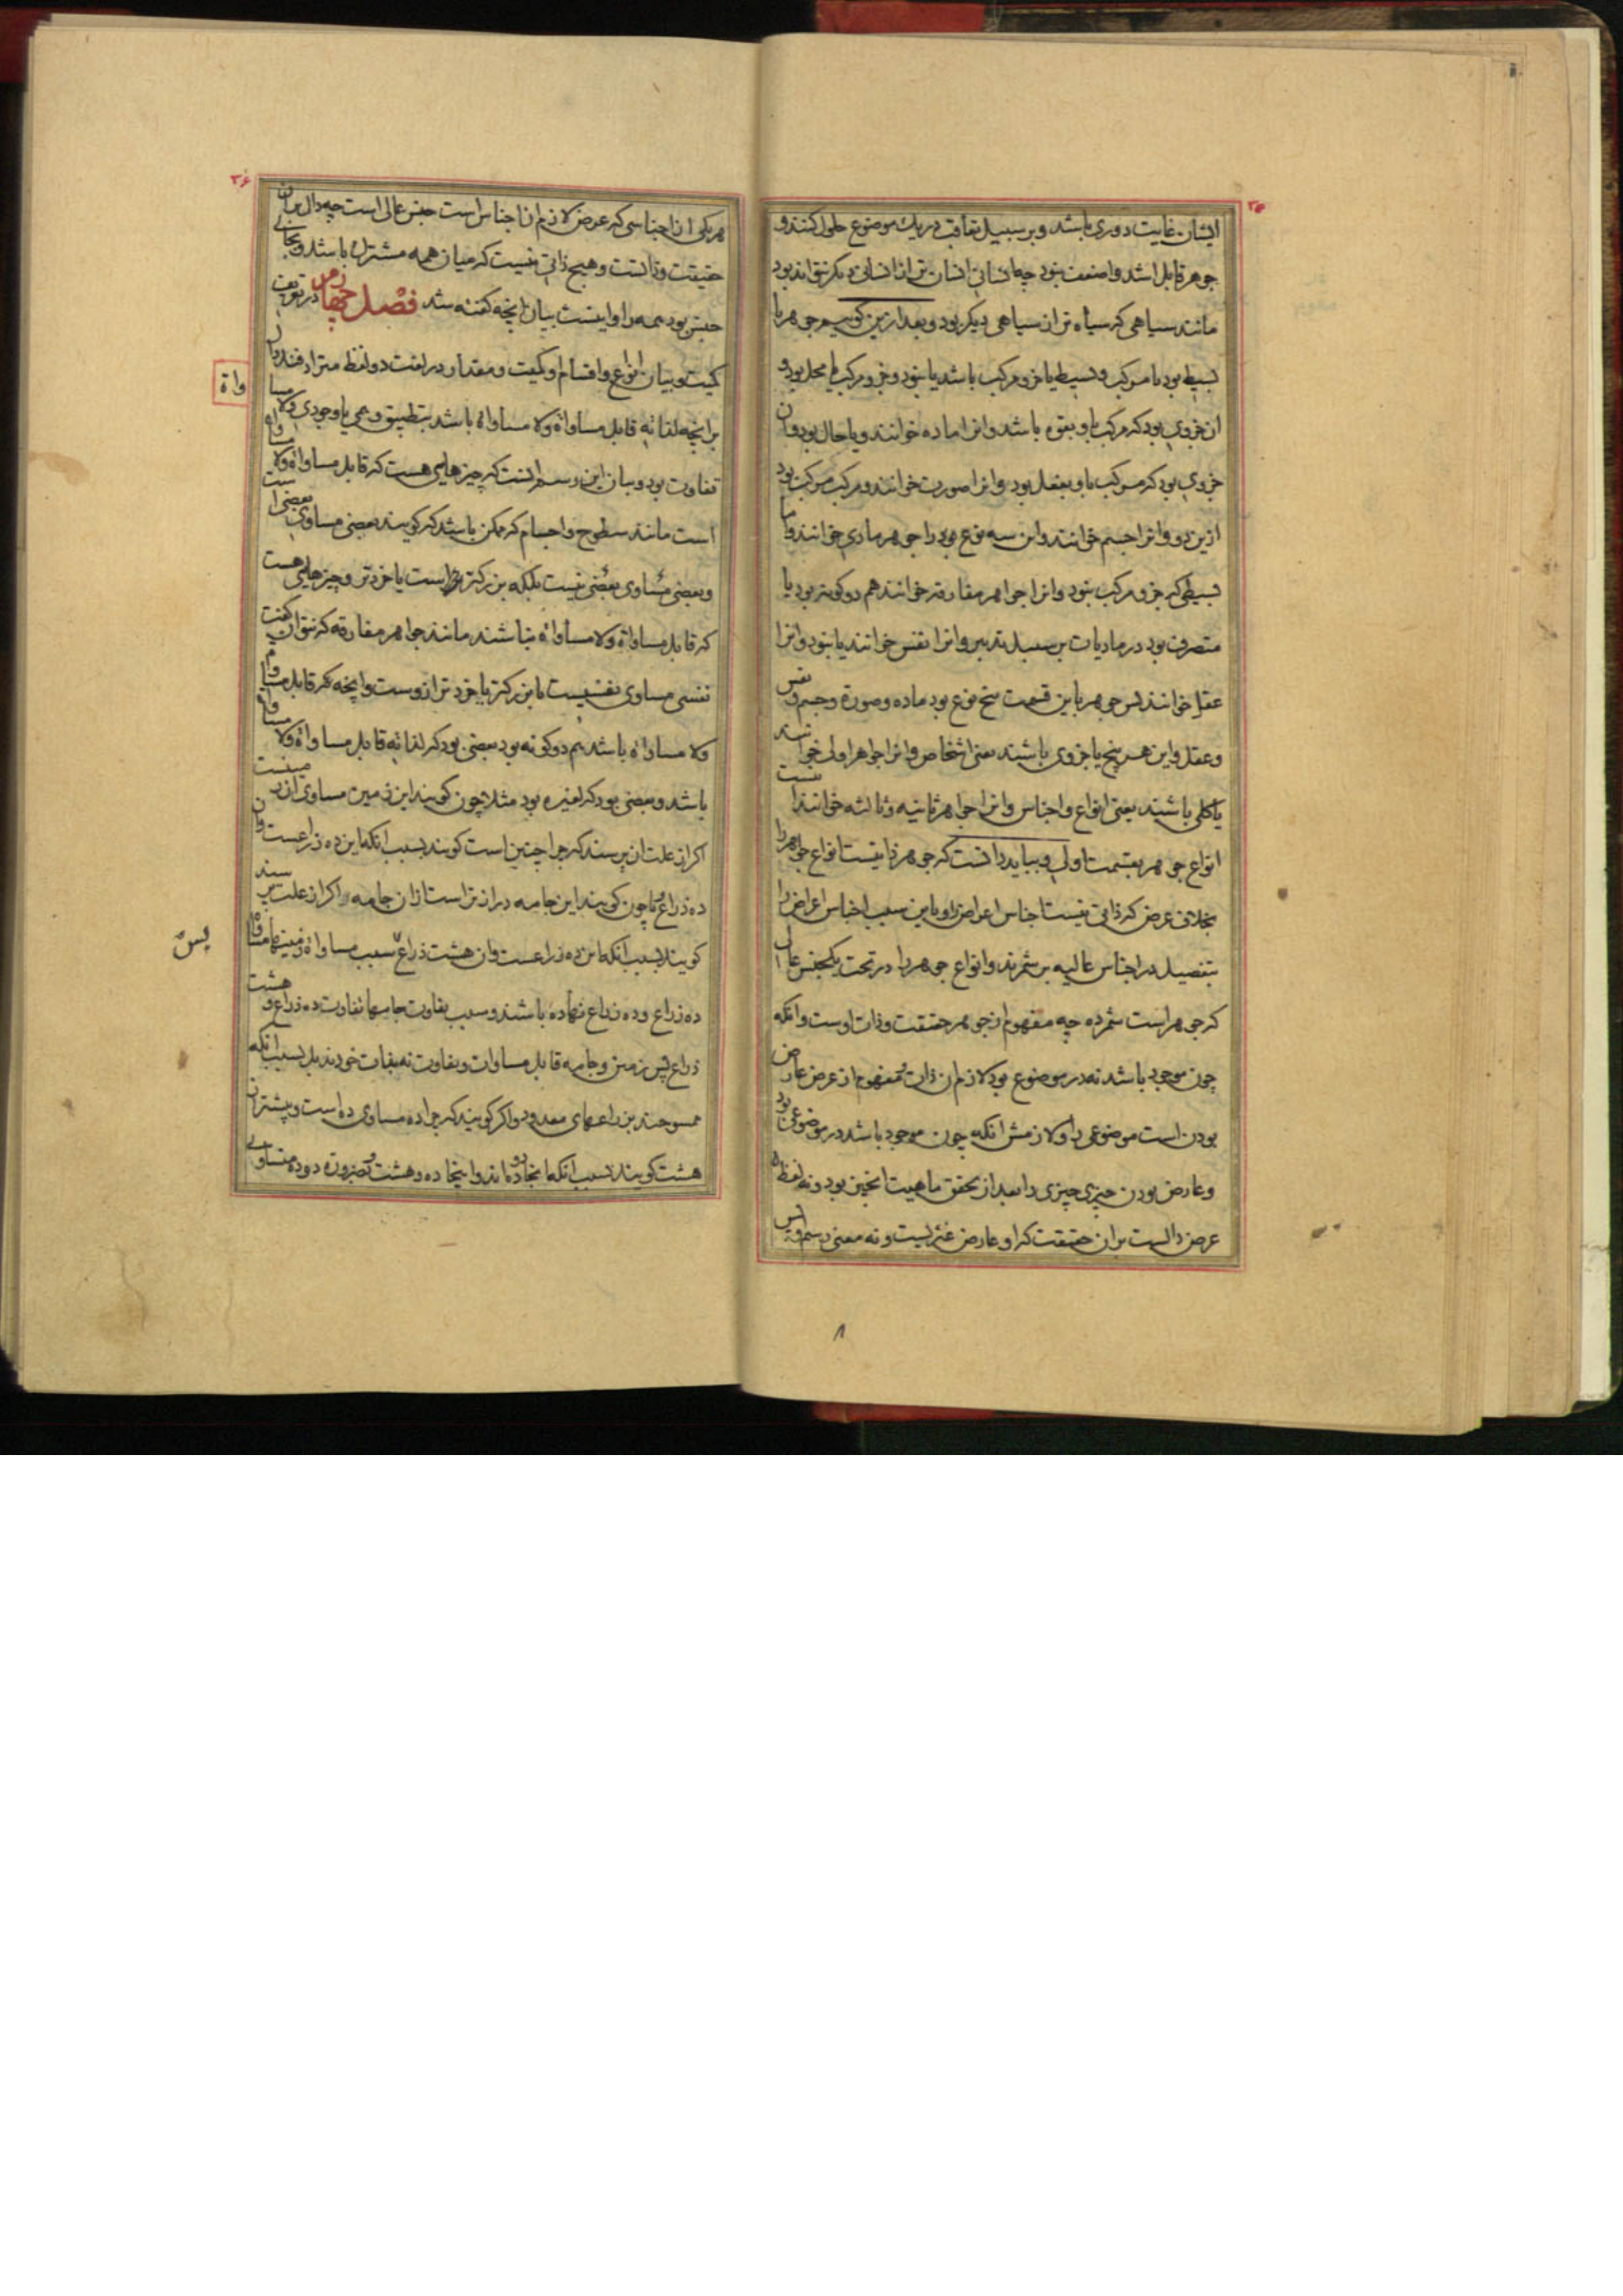 ۳۵
ایشان غایت دوری باشد و بر سبیل تعاقب در یك موضوع حلول کنند و
جوهر قابل اشد و اضعف نبود چه انسانی انسان تر از انسانی دیکر نتواند بود
مانند سیاهی که سیاه تر از سیاهی دیکر بود و بعد ازین کوییم جوهر یا
بسیط بود یا مرکب و بسیط یا جزو مرکب باشد یا نبود و جزو مرکب یا محل بود و
ان جزوی بود که مرکب باو بقوه باشد و انرا ماده خوانند و یا حال بود و ان
جزوی بود که مرکب باو بفعل بود و انرا صورت خوانند و مرکب مرکب بود
ازین دو و انرا جسم خوانند و این سه نوع بود را جوهر مادی خوانند و اما
بسیطی که جزو مرکب نبود و انرا جواهر مفارقه خوانند هم دو کونه بود یا
متصرف بود در مادیات بر سبیل تدبیر و انرا نفس خوانند یا نبود و انرا
عقل خوانند پس جوهر باین قسمت پنج نوع بود ماده و صورة و جسم و نفس
و عقل و این هر پنج یا جزوی باشند یعنی اشخاص و انرا جواهر اولی خوانند
یا کلی باشند یعنی انواع و اجناس و انرا جواهر ثانیه و ثالثه خوانند اینست
انواع جوهر بقسمت اولی و بباید دانست که جوهر ذاتیست انواع جواهر را
بخلاف عرض که ذاتی نیست اجناس اعراض را و باین سبب اجناس اعراض را
بتفصیل در اجناس عالیه بر شمرند و انواع جوهر را در تحت یکجنس عالی
که جوهر است شمرده چه مفهوم از جوهر حقیقت و ذات اوست و انکه
چون موجود باشد نه در موضوع بود لازم ان ذات و مفهوم از عرض عارض
بودن است موضوعی را و لازمش انکه چون موجود باشد در موضوعی بود
و عارض بودن چیزی چیزی را بعد از تحقق ماهیت انچیز بود و نه لفظ
عرض دالست بران حقیقت که او عارض غیریست و نه معنی رسم و پس
۸
۳۶
هر یکی از اجناسی که عرض لازم ان اجناس است جنس عالی است چه دال بر ان
حقیقت و ذاتست و هیچ ذاتی نیست که میان همه مشترك باشد و بجای
جنس بود همه را و اینست بیان انچه کفته شد فصل چهارم در تعریف
کمیت و بیان انواع و اقسام او کمیت و مقدار در لغت دو لفظ مترادفند دال
وا ة
بر انچه لذاته قابل مساواة و لا مساواة باشد بتطبیق وهمی یا وجودی و لا مسا
تفاوت بود و بیان این رسم انست که چیزهایی هست که قابل مساواة و لا مساواة
است مانند سطوح و اجسام که ممکن باشد که کویند بعضی مساوی بعضی است
و بعضی مساوی بعضی نیست بلکه بزرکتر است یا خردتر و چیزهایی هست
که قابل مساواة و لا مساواة نباشند مانند جواهر مفارقه که نتوان کفت
نفسی مساوی نفسیست یا بزرکتر یا خردتر ازوست و انچه که قابل مساواة
و لا مساواة باشد هم دو کونه بود بعضی بود که لذاته قابل مساواة و لا مساواة
باشد و بعضی بود که لغیره بود مثلا چون کویند این زمین مساوی ان زمینست
اکر از علت ان پرسند که چرا چنین است کویند بسبب انکه این ده ذراعست و ان
ده ذراع و یا چون کویند این جامه درازتر است از ان جامه و اکر از علت پرسند
کویند بسبب انکه این ده ذراعست و ان هشت ذراع پس سبب مساواة زمینها مساواة
پس
ده ذراع و ده ذراع نهاده باشند و سبب تفاوت جامها تفاوت ده ذراع و هشت
ذراع پس زمین و جامه قابل مساوات و تفاوت نه بذات خودند بل بسبب انکه
ممسوحند بذراعهای معدود و اکر کویند که چرا ده مساوی ده است و بیشتر از
هشت کویند بسبب انکه اینجا ده و ده اند و اینجا ده و هشت و بضرورة ده و ده متساوی